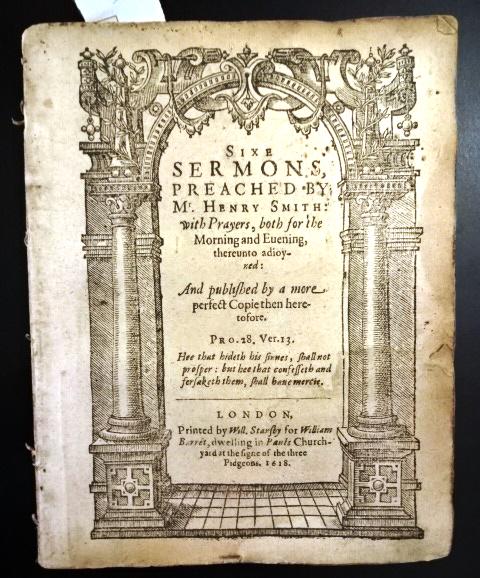 SIXE
SERMONS,
PREACHED BY
Mr. HENRY SMITH:
with Prayers, both for the
Morning and Euening,
thereunto adioy-
ned:
And published by a more
perfect Copie then here-
tofore.
PRO. 28, Ver. 13.
Hee that hideth his sinnes, shall not
prosper: but hee that confesseth and
forsaketh them, shall haue mercie.
LONDON,
Printed by Will. Stansby for William
Barret, dwelling in Pauls Church-
yard at the signe of the three
Pidgeons. 1618.